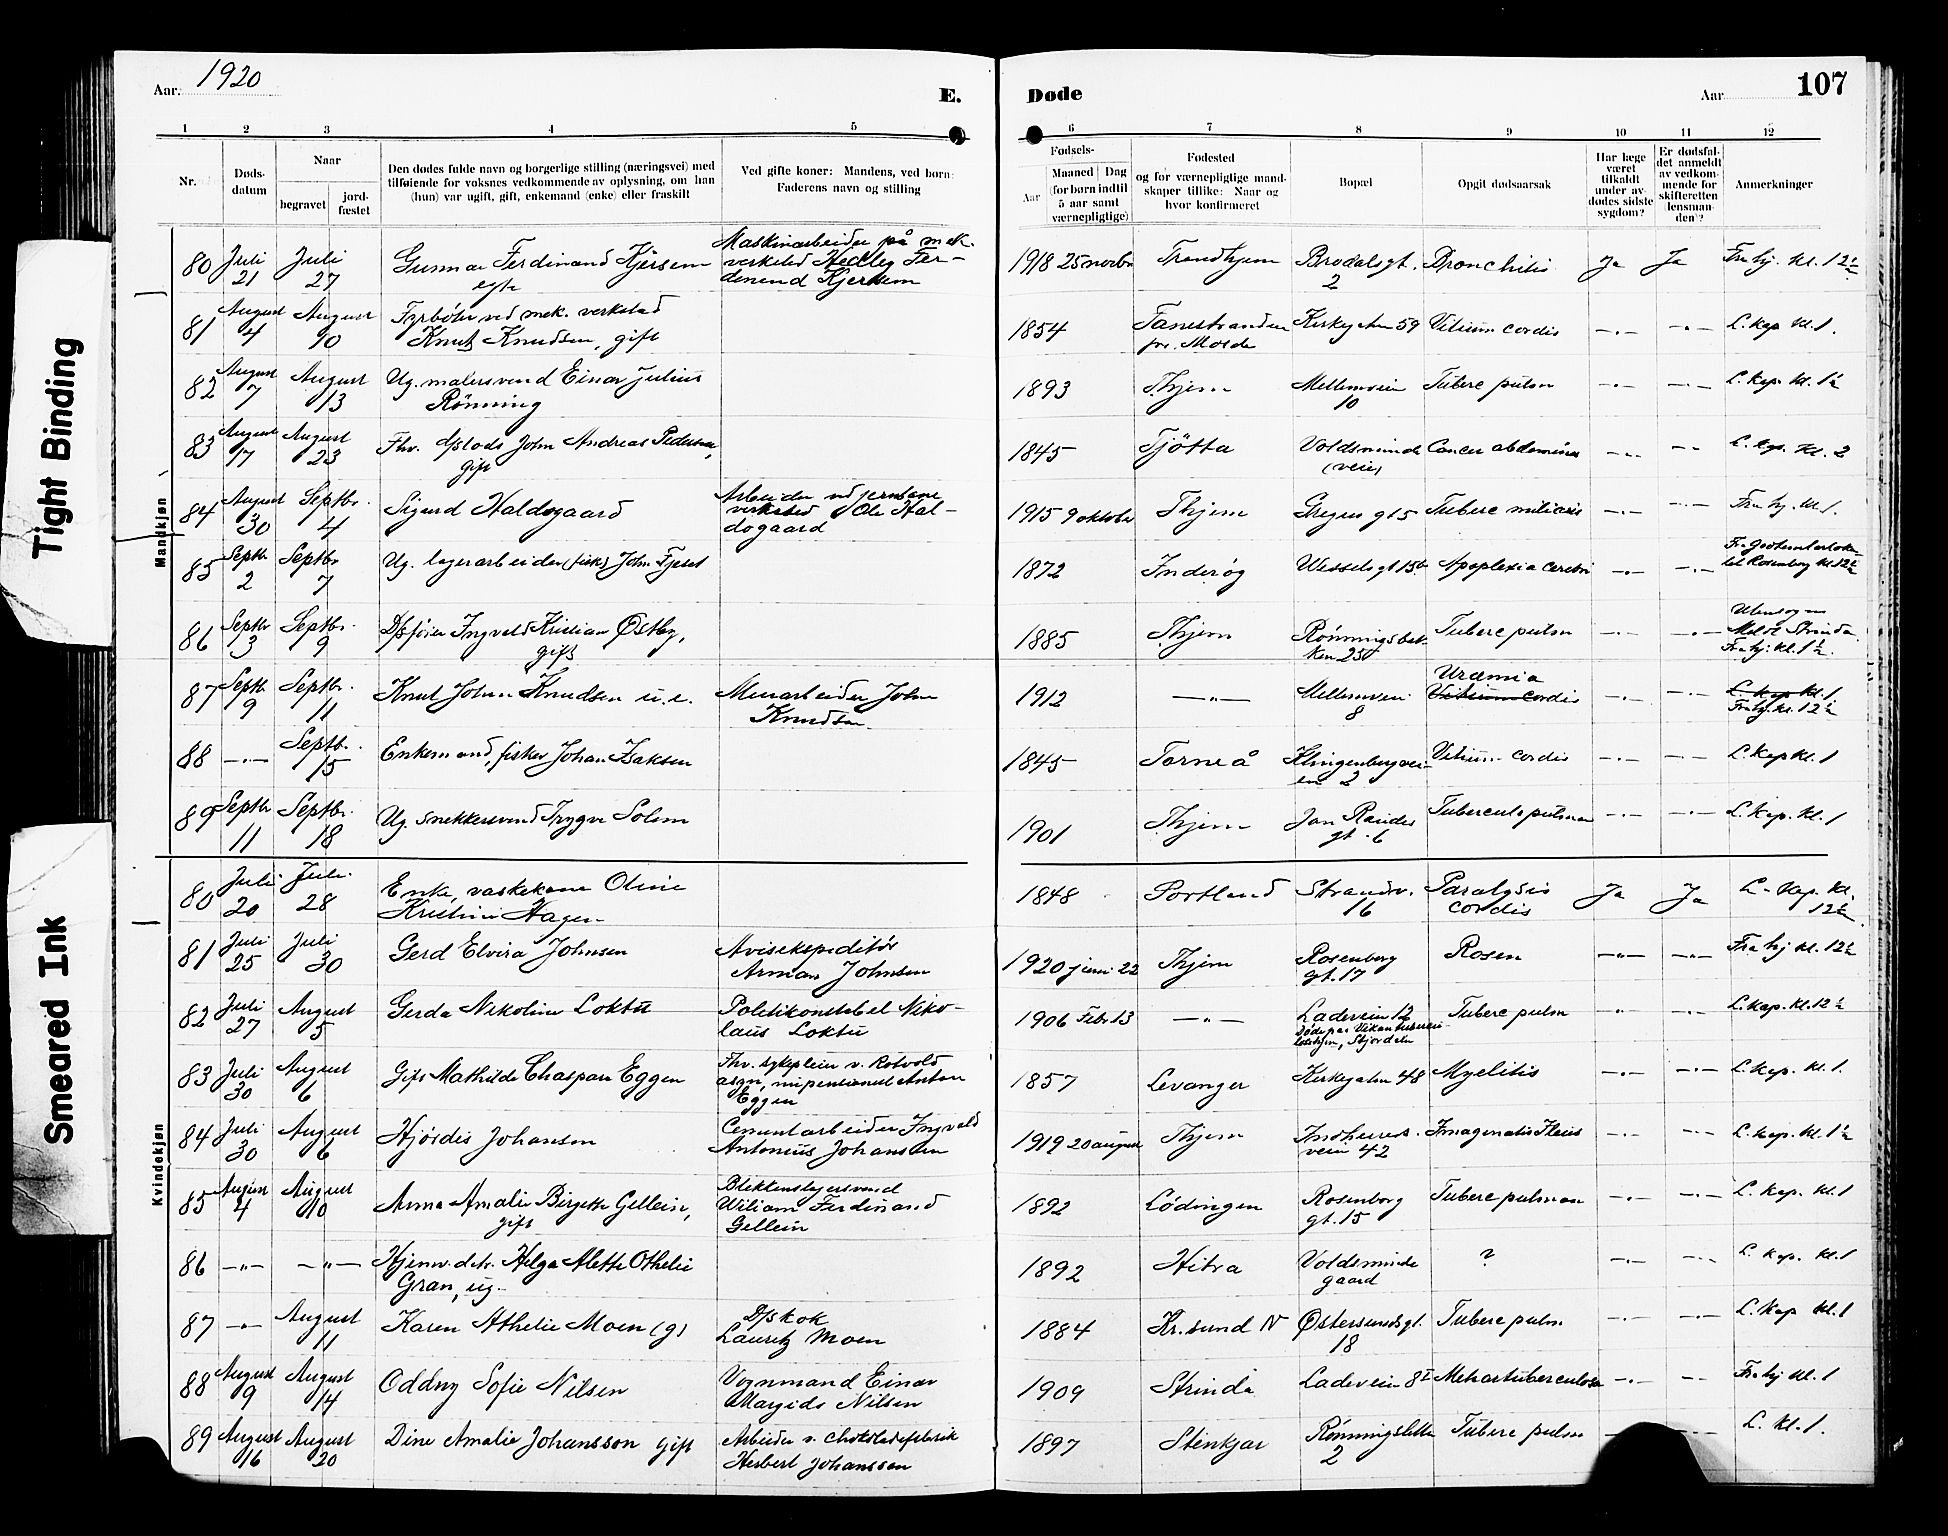 Aar. 1920
E.
Døde
Aar
107
1 2 3 4 5 6 7 8 9 10 11 12
Nr.
Døds-
datum
Naar
begravet
jord-
fæstet
Den dødes fulde navn og borgerlige stilling (næringsvei) med
tilføiende for voksnes vedkommende av oplysning, om han
(hun) var ugift, gift, enkemand (enke) eller fraskilt
Ved gifte koner: Mandens, ved børn:
Faderens navn og stilling
Fødsels-
Aar
Maaned Dag
(for børn indtil
5 aar samt
værnepligtige)
Fødested
og for værnepligtige mand-
skaper tillike: Naar og
hvor konfirmeret
Bopæl
Opgit dødsaarsak
Har læge
været
tilkaldt
under av-
dødes sidste
sygdom?
Er dødsfal-
det anmeldt
av vedkom-
mende for
skifteretten
(lensman-
den)?
Anmerkninger
Mandkjøn
80 Juli 21 Juli 27 Gunnar Ferdinand Kjersem egte Maskinarbeider på mek. verksted Hedley Fer- dinend Kjersem 1918 25 novbr Trondhjem Brodalsgt. 2 Bronchitis Ja Ja Fra hj. kl. 12½
81 August 4 August 10 Fyrbøter ved mek. verksted Knut Knudsen, gift 1854 Fanestranden pr. Molde Kirkegaten 59 Vitium cordis —"— —"— L. kap kl. 1.
82 August 7 August 13 Ug. malersvend Einar Julius Rönning 1893 Thjem Mellemveien 10 Tuberc pulm —"— —"— L. kap. kl. 1½
83 August 17 August 23 Fhv. d/s lods John Andreas Pedersen, gift 1845 Tjötta Voldsminde (veien) Cancer abdominis —"— —"— L. kap. kl. 2
84 August 30 Septbr. 4 Sigurd Haldogaard Arbeider ved jernbane verksted Ole Hal- dogaard 1915 9 oktober Thjem Gregus gt 5 Tuberc miliaris —"— —"— Fra hj. kl. 1.
85 Septb. 2 Septbr 7 Ug. lagerarbeider (fisk) John Fjeset 1872 Inderøy Wessels gt 15b Apoplexia cerebri —"— —"— Rosenborg kl. 12½
86 Septbr 3 Septbr. 9 D/s fører Ingvald Kristian Østby, gift 1885 Thjem Rönningsbak- ken 25 Tuberc pulm —"— —"— Utensogns Meldt Strinda. Fra hj. kl. 1½.
87 Septb. 9 Septbr. 11 Knut Johan Knudsen u.e. Murarbeider John Knudsen 1912 —"— Mellemveien 8 Uræmia Vitium cordis —"— —"— L. kap kl. 1 Fra hj. kl. 12½
88 —"— Septb. 15 Enkemand, fisker Johan Isaksen 1845 Torneå Klingenbergvei- en 2 Vitium cordis —"— —"— L. kap kl. 1
89 Septbr 11 Septbr. 18 Ug. snekkersvend Trygve Solem 1901 Thjem Jan Raudes gt. 6 Tubercule pulmon —"— —"— L. kap. kl. 1
Kvindekjøn
80 Juli 20 Juli 28 Enke, vaskekone Oline Kristine Hagen 1848 Portland Strandv. 16 Paralysis cordis Ja Ja L. kap. kl. 12½
81 Juli 25 Juli 30 Gerd Elvira Johnsen Avisekspeditör Arman Johnsen 1920 juni 22 Thjem Rosenborg gt. 17 Rosen —"— —"— Fra hj kl. 12½
82 Juli 27 August 5 Gerda Nikoline Loktu Politikonstabel Niko- laus Loktu 1906 Febr. 13 —"— Ladeveien 12 Døde paa Vikan Stjørdalen Tuberc pulm —"— —"— L. kap. kl. 12½
83 Juli 30 August 6 Gift Mathilde Chaspara Eggen Fhv. sykepleier v. Rotvold asyn, nu pensionert Anton Eggen 1857 Levanger Kirkegaten 48 Myelitis —"— —"— L. kap. kl. 1.
84 Juli 30 August 6 Hjördis Johansen Cementarbeider Ingvald Antonius Johansen 1919 20 august Thjem Indherreds- veien 42 Ileus —"— —"— L. kap. kl. 1½
85 August 4 August 10 Anna Amalie Birgitte Gellein, gift Blikkenslagersvend Wiliam Ferdinand Gellein 1892 Lödingen Rosenborg gt. 15 Tuberc pulmon —"— —"— L. kap. kl. 1
86 —"— —"— Hjemv. dtr. Helga Alette Othelie Gran, ug. 1892 Hitra Voldsminde gaard ? —"— —"— L. kap. kl. 1
87 —"— August 11 Karen Athelie Moen (g) D/s kok Lauritz Moen 1884 Kr.sund N Østersundsgt. 18 Tuberc pulm. —"— —"— L. kap kl. 1
88 August 9 August 14 Oddny Sofie Nilsen Vognmand Einar Margido Nilsen 1909 Strinda Ladeveien 8I —"— —"— Fra hj kl. 1
89 August 16 August 20 Dine Amalie Johansson gift Arbeider v. chokoladefabrik Herbert Johanssen 1897 Stenkjær Rönningsletta 2 Tuberc pulm —"— —"— L. kl. 1.
Tight Binding
Smeared Ink